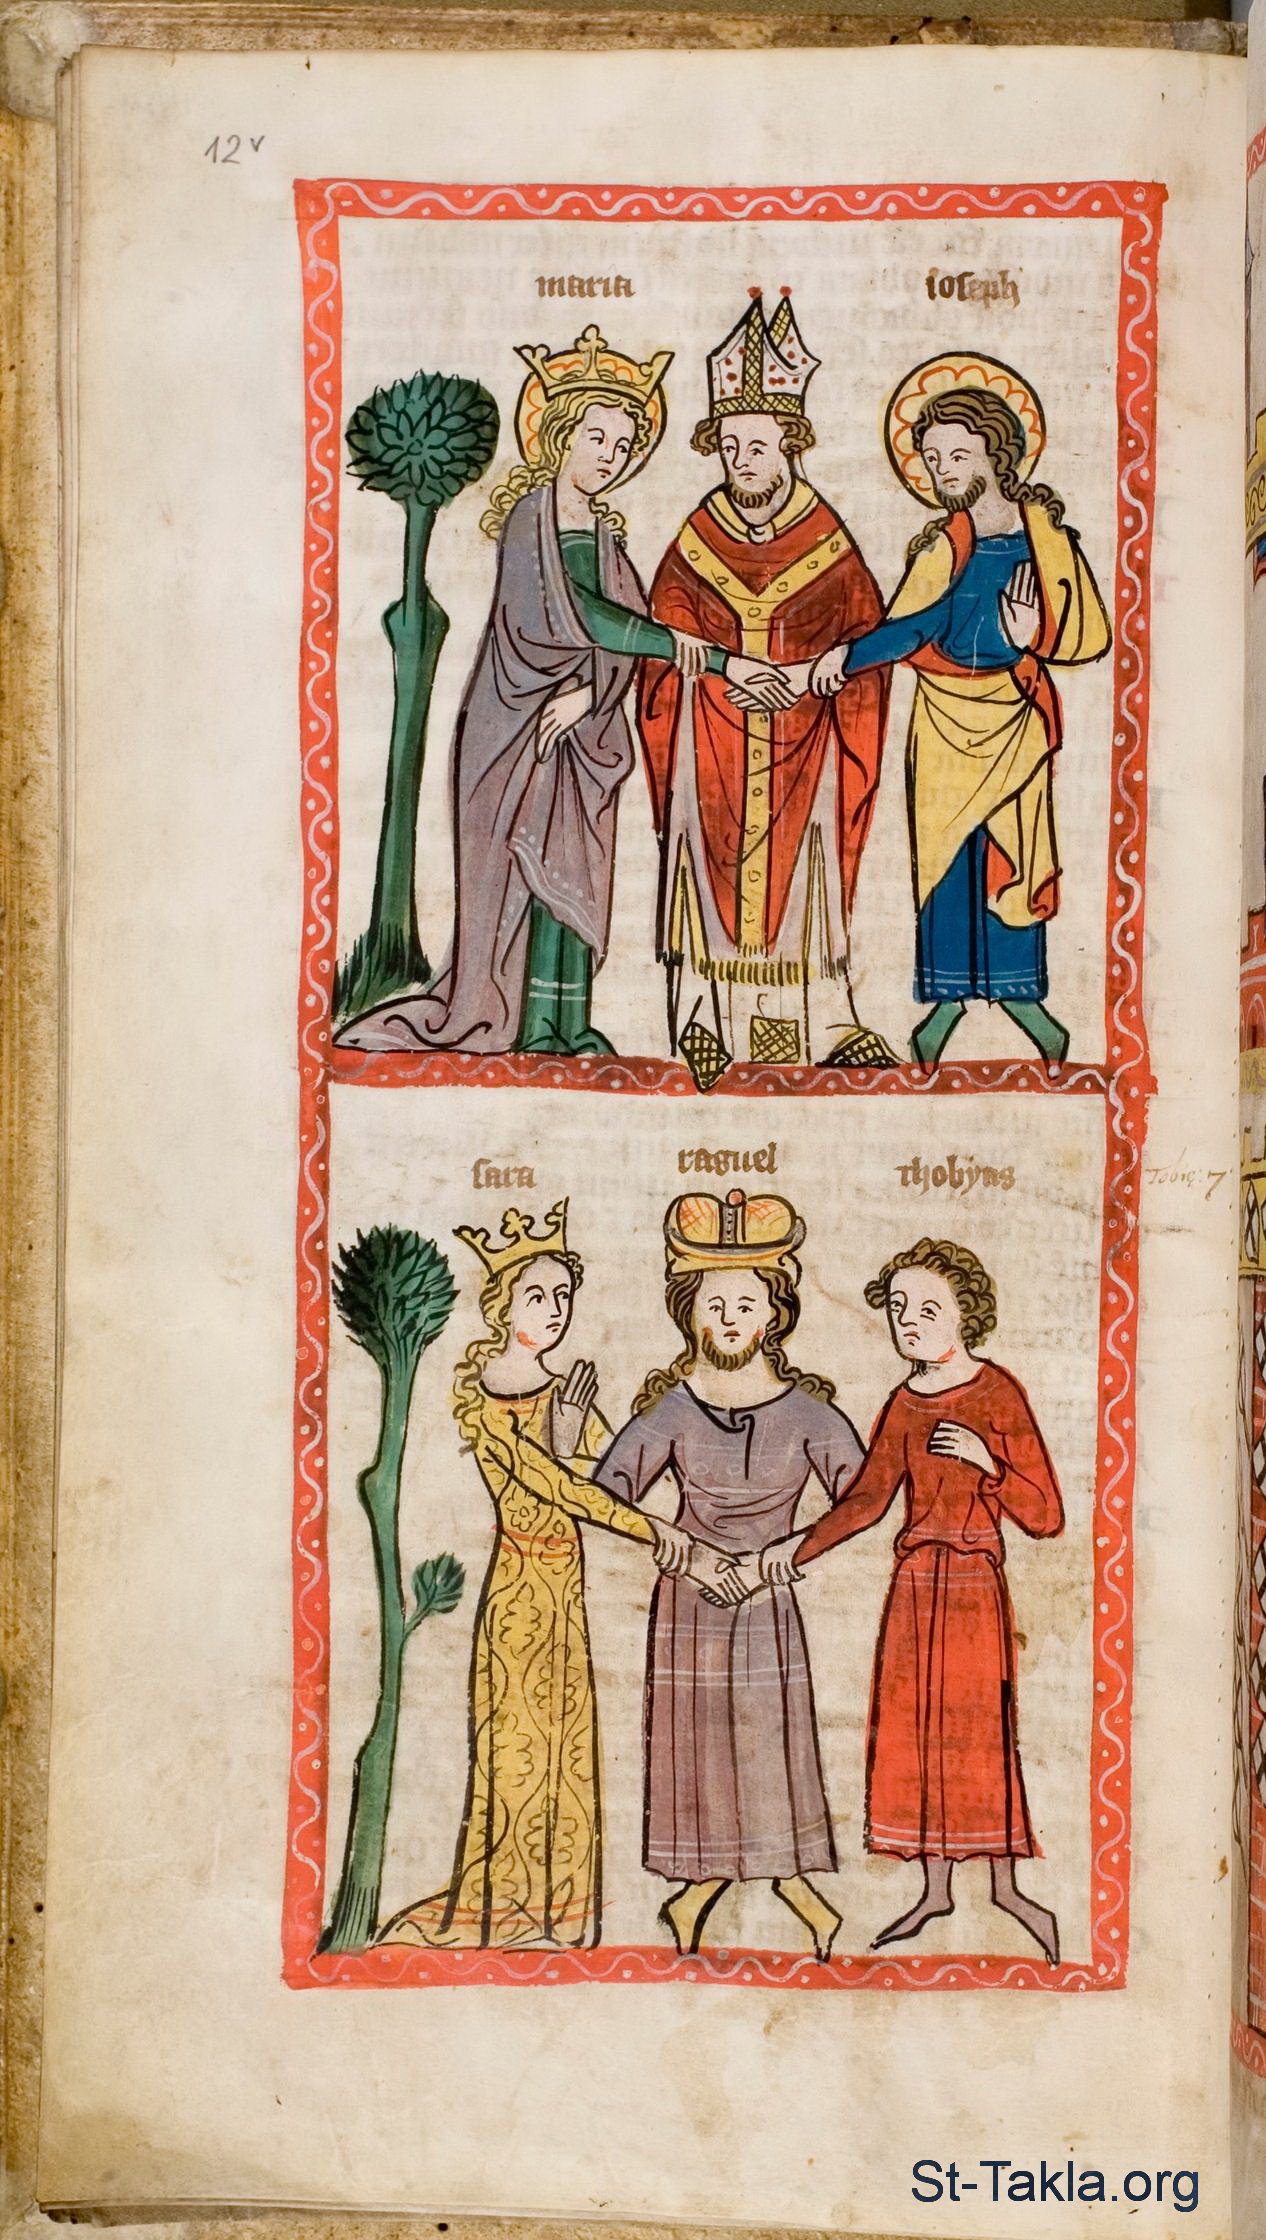 12v
maria
ioseph
sara
raguel
thobyas
Tobie: 7
St-Takla.org